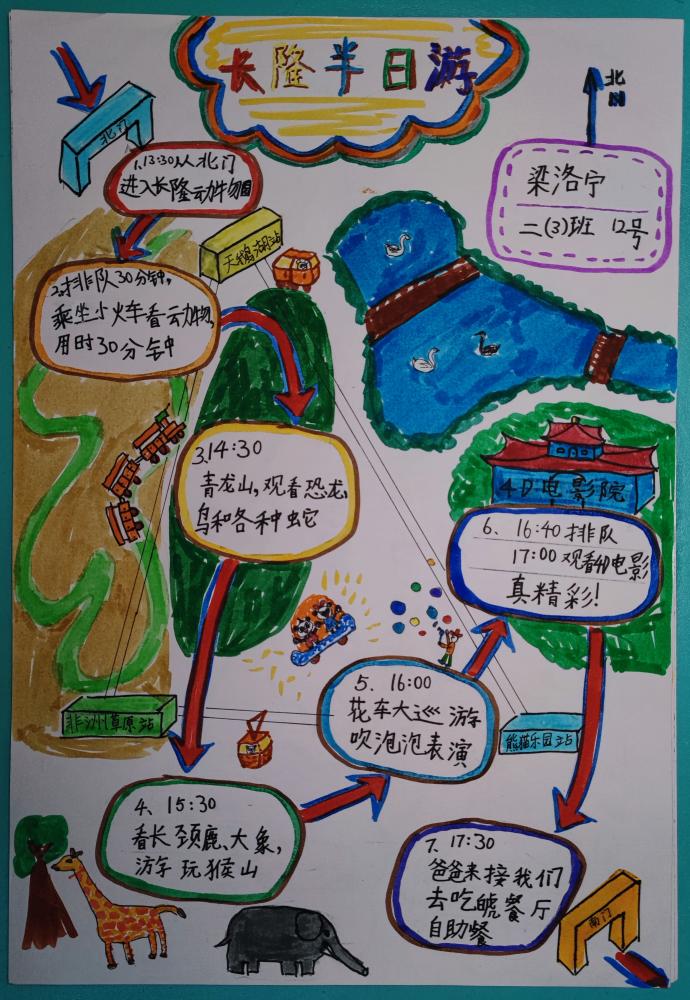 长隆半日游
北
北门
梁洛宁
二(3)班 12号
1.13:30从北门
进入长隆动物园
天鹅湖站
2.排队30分钟,
乘坐小火车看动物,
用时30分钟
3.14:30
青龙山,观看恐龙,
鸟和各种蛇
4D电影院
6、16:40排队
17:00观看4D电影
真精彩!
5、16:00
花车大巡游
吹泡泡表演
非洲草原站
熊猫乐园站
4、15:30
看长颈鹿、大象,
游玩猴山
7、17:30
爸爸来接我们
去吃虎餐厅
自助餐
南门